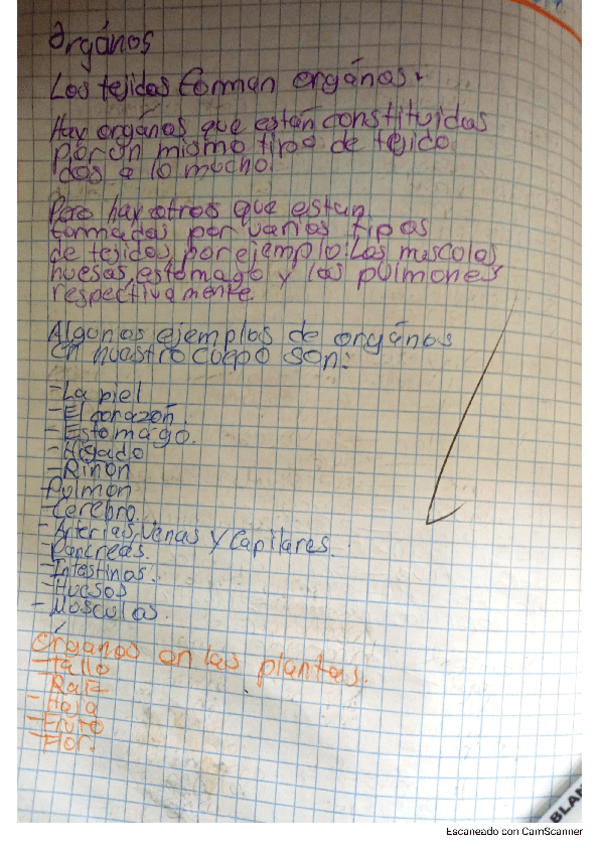 Orgános
Los tejidos forman orgános.
Hay orgános que están constituidos
por un mismo tipo de tejido
dos a lo mucho.
Pero hay otros que estan
formados por varios tipos
de tejidos por ejemplo: Los musculos,
huesos, estomago y los pulmones
respectivamente
Algunos ejemplos de orgános
en nuestro cuepo son:
-La piel
-El corazón
-Estomago.
-Higado
-Riñon
-Pulmon
-Cerebro
-Arterias, Venas y Capilares.
-Pancreas.
-Intestinos.
-Huesos
-Musculos.
Órganos en las plantas.
-Tallo
Raíz
-Hoja
-Fruto
-Flor.
BLAN
Escaneado con CamScanner